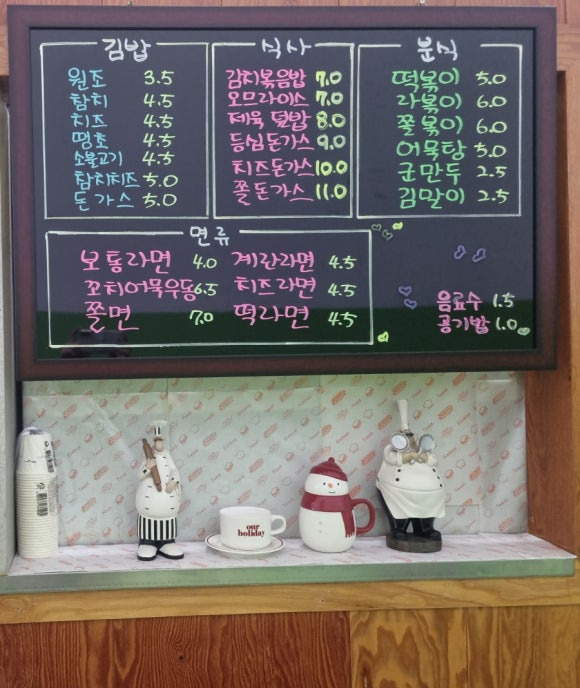 김밥
원조 3.5
참치 4.5
치즈 4.5
땡초 4.5
소불고기 4.5
참치치즈 5.0
돈가스 5.0
식사
김치볶음밥 7.0
오므라이스 7.0
제육덮밥 8.0
등심돈가스 9.0
치즈돈가스 10.0
쫄돈가스 11.0
분식
떡볶이 5.0
라볶이 6.0
쫄볶이 6.0
어묵탕 5.0
군만두 2.5
김말이 2.5
면류
보통라면 4.0
꼬치어묵우동 6.5
쫄면 7.0
계란라면 4.5
치즈라면 4.5
떡라면 4.5
음료수 1.5
공기밥 1.0
our
holiday